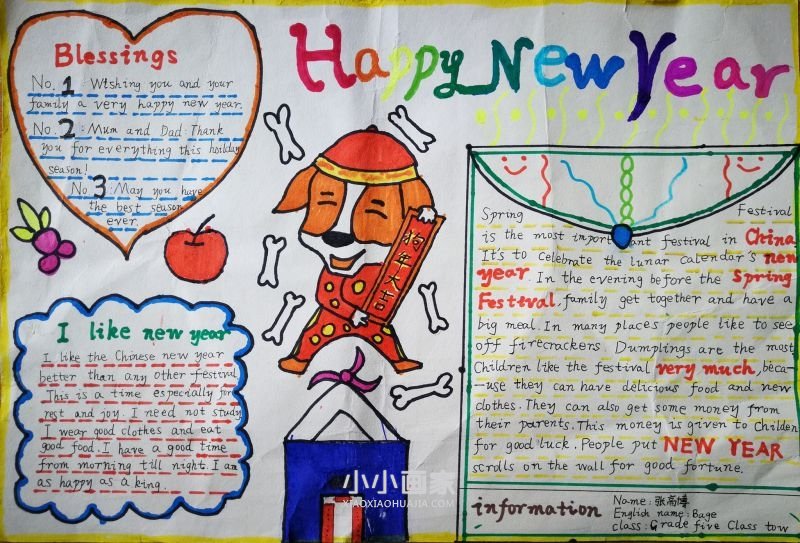 Happy New Year
Blessings
No.1 Wishing you and your
family a very happy new year.
No.2 : Mum and Dad: Thank
you for everything this holiday
season!
No 3 : May you have
the best season
ever.
I like new year
I like the Chinese new year
better than any other festival
This is a time especially for
rest and joy. I need not study
I wear good clothes and eat
good food. I have a good time
from morning till night. I am
as happy as a king.
狗年大吉
Spring Festival
is the most important festival in China
It's to celebrate the lunar calendar's new
year. In the evening before the Spring
Festival. family get together and have a
big meal. In many places people like to see
off firecrackers. Dumplings are the most
Children like the festival very much, beca-
-use they can have delicious food and new
clothes. They can also get some money from
their parents. This money is given to Childen
for good luck. People put NEW YEAR
scrolls on the wall for good fortune.
information
Name:
English name: Bage
class: Grade five Class tow
小小画家
XIAOXIAOHUAJIA.COM